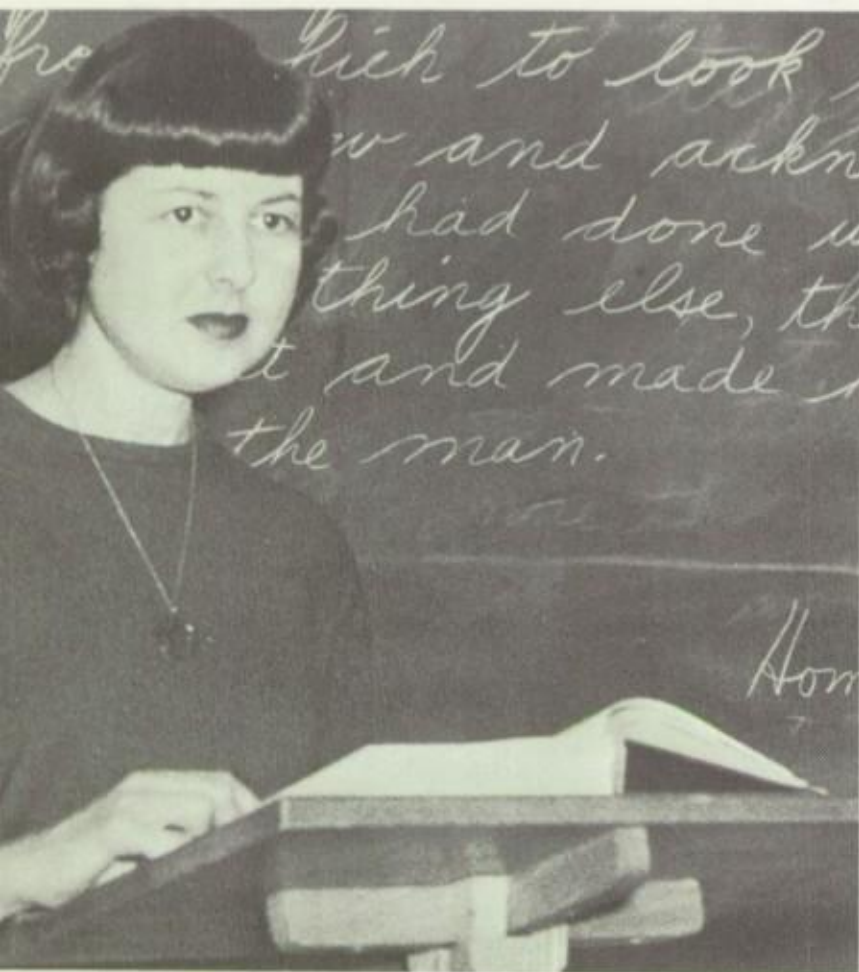 hich to look
w and ackn
had done
thing else, th
t and made
the man.
Hom